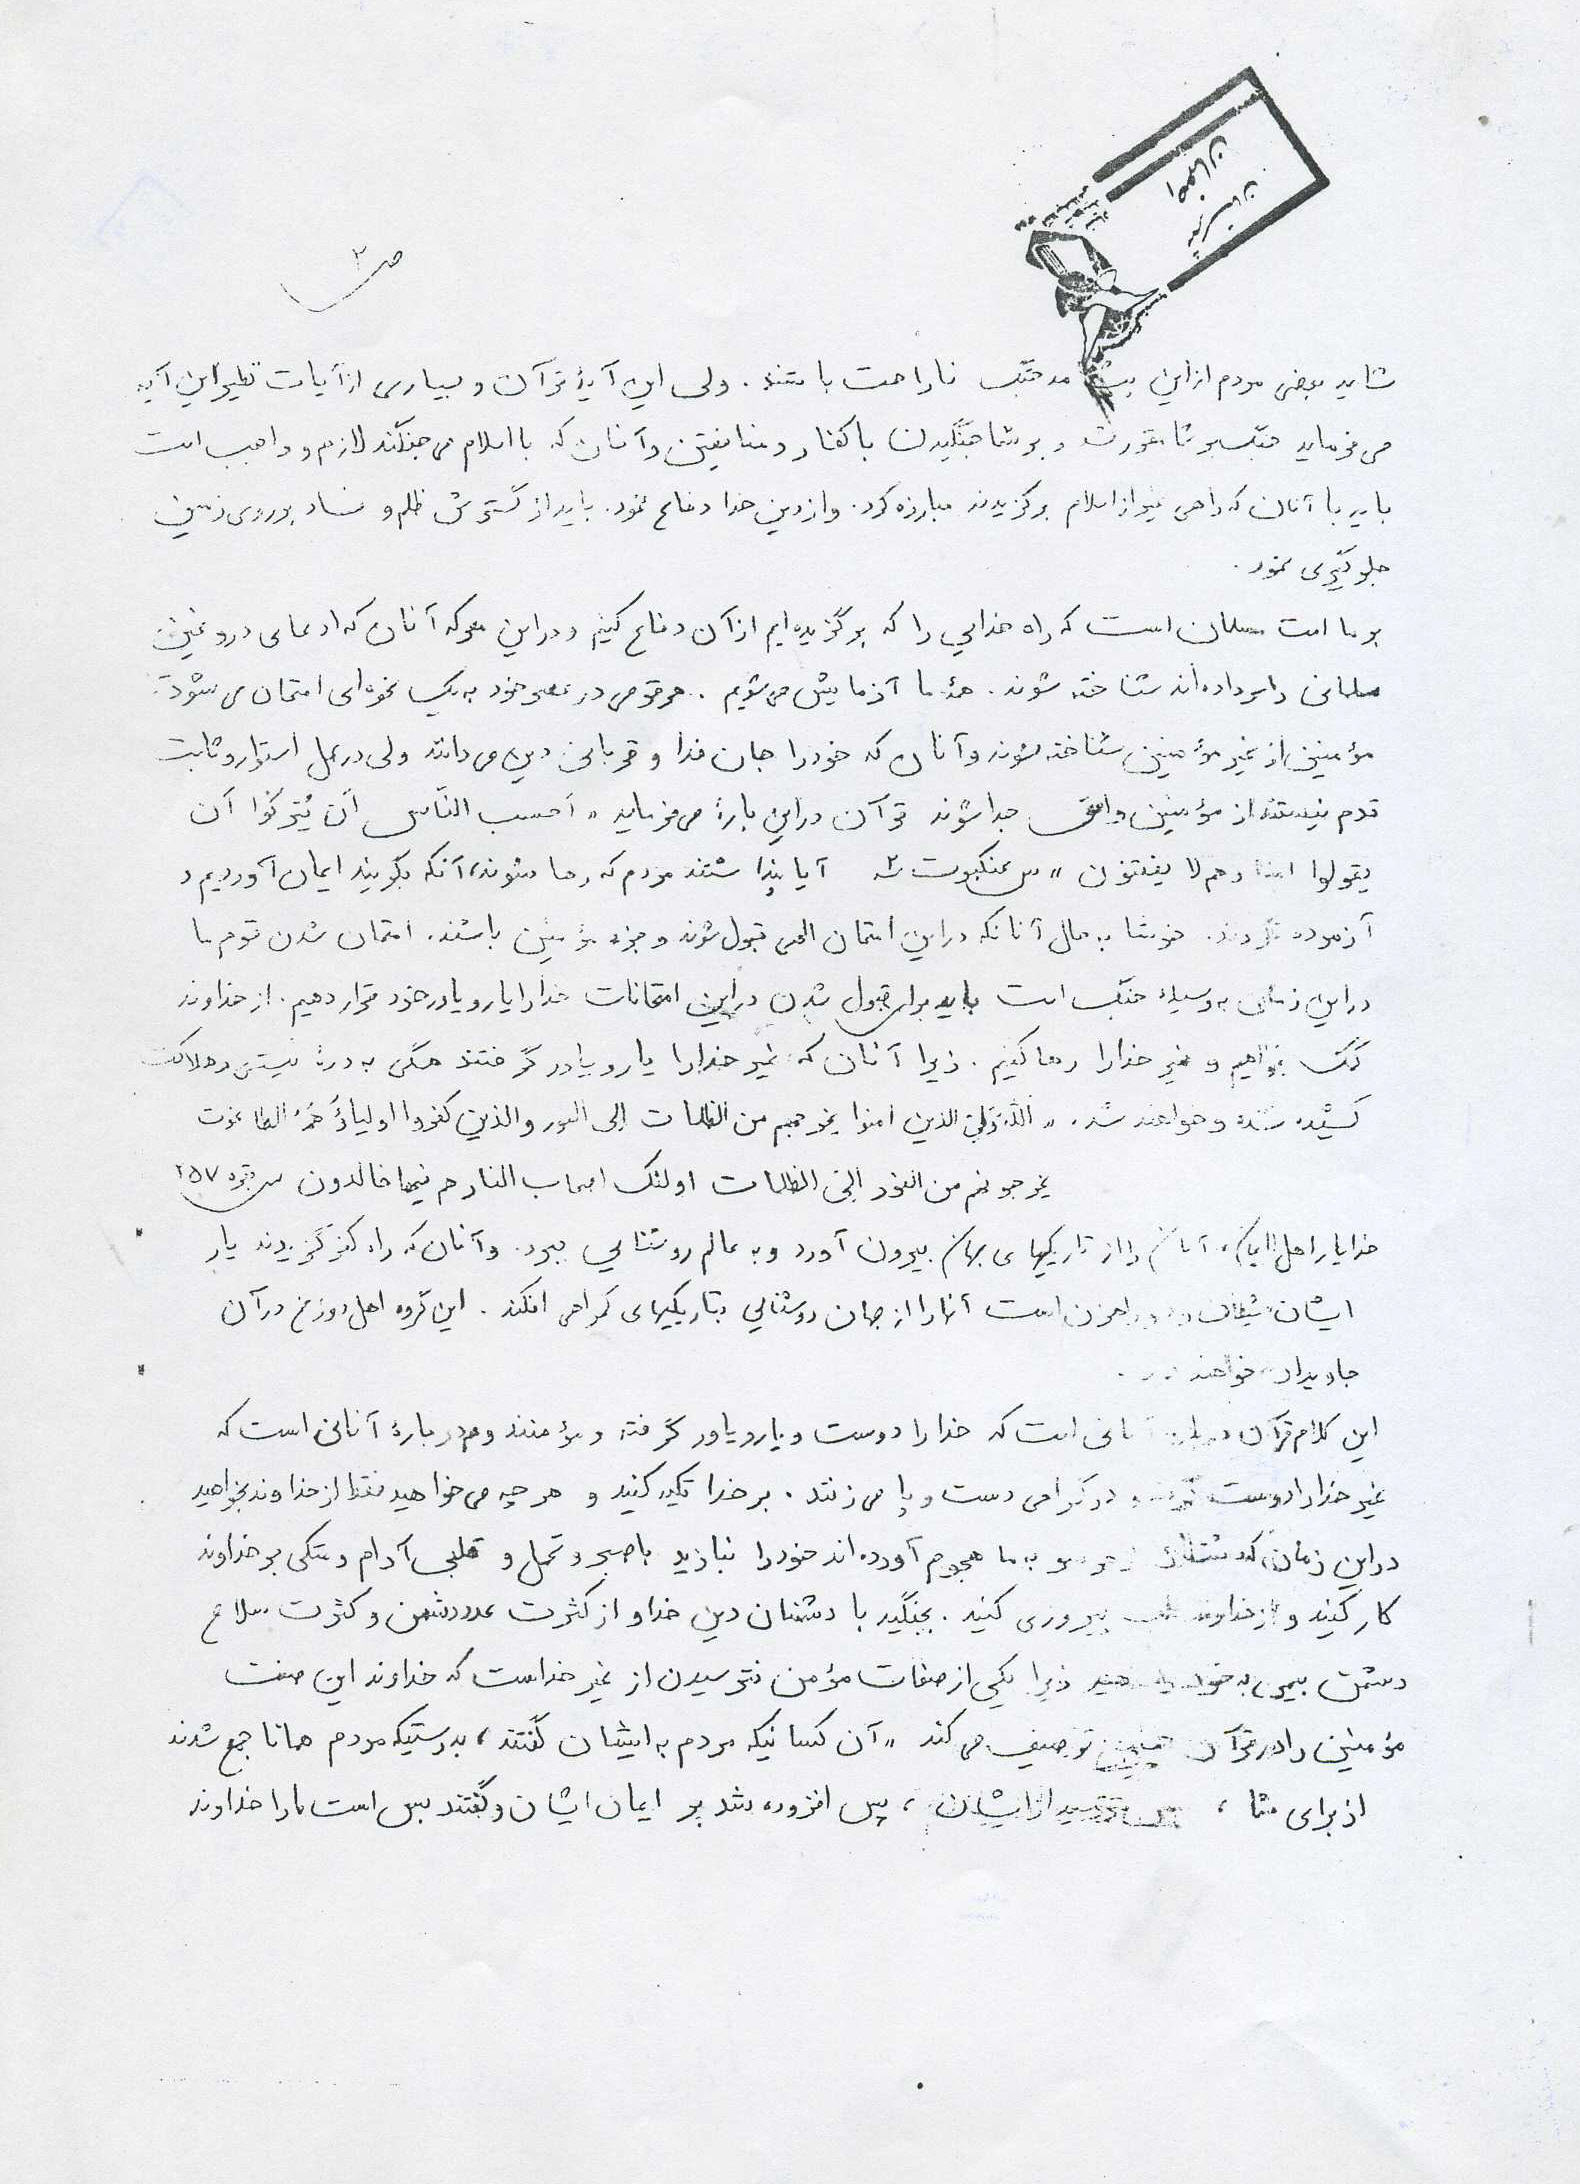 ص ۲
شاید بعضی مردم از این جنگ ناراحت باشند. ولی این آیهٔ قرآن و بسیاری از آیات نظیر این آیه
می‌فرماید جنگ بر شما مقرر است و بر شما جنگیدن با کفار و منافقین و آنان که با اسلام می‌جنگند لازم و واجب است
باید با آنان که راهی غیر از اسلام برگزیدند مبارزه کرد. و از دین خدا دفاع نمود. باید از گسترش ظلم و فساد بر روی زمین
جلوگیری نمود.
بر ما امت مسلمان است که راه خدایی را که برگزیده‌ایم از آن دفاع کنیم و در این معرکه آنان که ادعای دروغین
مسلمانی داده‌اند شناخته شوند. همهٔ ما آزمایش می‌شویم. هر قومی در عصر خود به یک نحوه‌ای امتحان می‌شود تا
مؤمنین از غیر مؤمنین شناخته شوند و آنان که خود را جان فدا و قربانی دین می‌دانند ولی در عمل استوار و ثابت
قدم نیستند از مؤمنین واقعی جدا شوند قرآن در این بارهٔ می‌فرماید «اَحسب النّاس اَن یُترکوا اَن
یقولوا امنا و هم لا یفتنون» س عنکبوت ۲ آیا پنداشتند مردم که رها شوند، آنکه بگویند ایمان آوردیم و
آزموده نگردند. خوشا به حال آنانکه در این امتحان الهی قبول شوند و جزء مؤمنین باشند. امتحان شدن قوم ما
در این زمان به وسیلهٔ جنگ است باید برای قبول شدن در این امتحانات خدا را یار و یاور خود قرار دهیم. از خداوند
کمک بخواهیم و غیر خدا را رها کنیم. زیرا آنان که غیر خدا را یار و یاور گرفتند همگی به درهٔ نیستی و هلاکت
کشیده شده و خواهند شد. «اللّهُ وَلیُّ الذین امنوا یخرجهم من الظلمات إلی النور والذین کفروا اولیاؤُهُمُ الطاغوت
یخرجونهم من النور الی الظلمات اولئک اصحاب النار هم فیها خالدون س بقره ۲۵۷
خدا یار اهل ایمان، آنان را از تاریکیهای جهان بیرون آورد و به عالم روشنایی ببرد. و آنان که راه کفر گزیدند یار
ایشان شیطان و راهزن است آنها را از جهان روشنایی بتاریکیهای گمراهی افکند. این گروه اهل دوزخ در آن
جاویدان خواهند بود.
این کلام قرآن درباره آنانی است که خدا را دوست و یار و یاور گرفته و مؤمنند و هم دربارهٔ آنانی است که
غیر خدا را دوست گرفته و در گمراهی دست و پا می‌زنند. بر خدا تکیه کنید و هر چه می‌خواهید فقط از خداوند بخواهید
در این زمان که دشمنان از هر سو به ما هجوم آورده‌اند خود را نبازید با صبر و تحمل و قلبی آرام و متکی بر خداوند
کار کنید و از خداوند طلب پیروزی کنید. بجنگید با دشمنان دین خدا و از کثرت عدد دشمن و کثرت سلاح
دشمن بیمی به خود راه ندهید زیرا یکی از صفات مؤمن نترسیدن از غیر خداست که خداوند این صفت
مؤمنین را در قرآن چنین توصیف می‌کند «آن کسانیکه مردم به ایشان گفتند، بدرستیکه مردم همانا جمع شدند
از برای شما، پس بترسید از ایشان، پس افزوده شد بر ایمان ایشان و گفتند بس است ما را خداوند